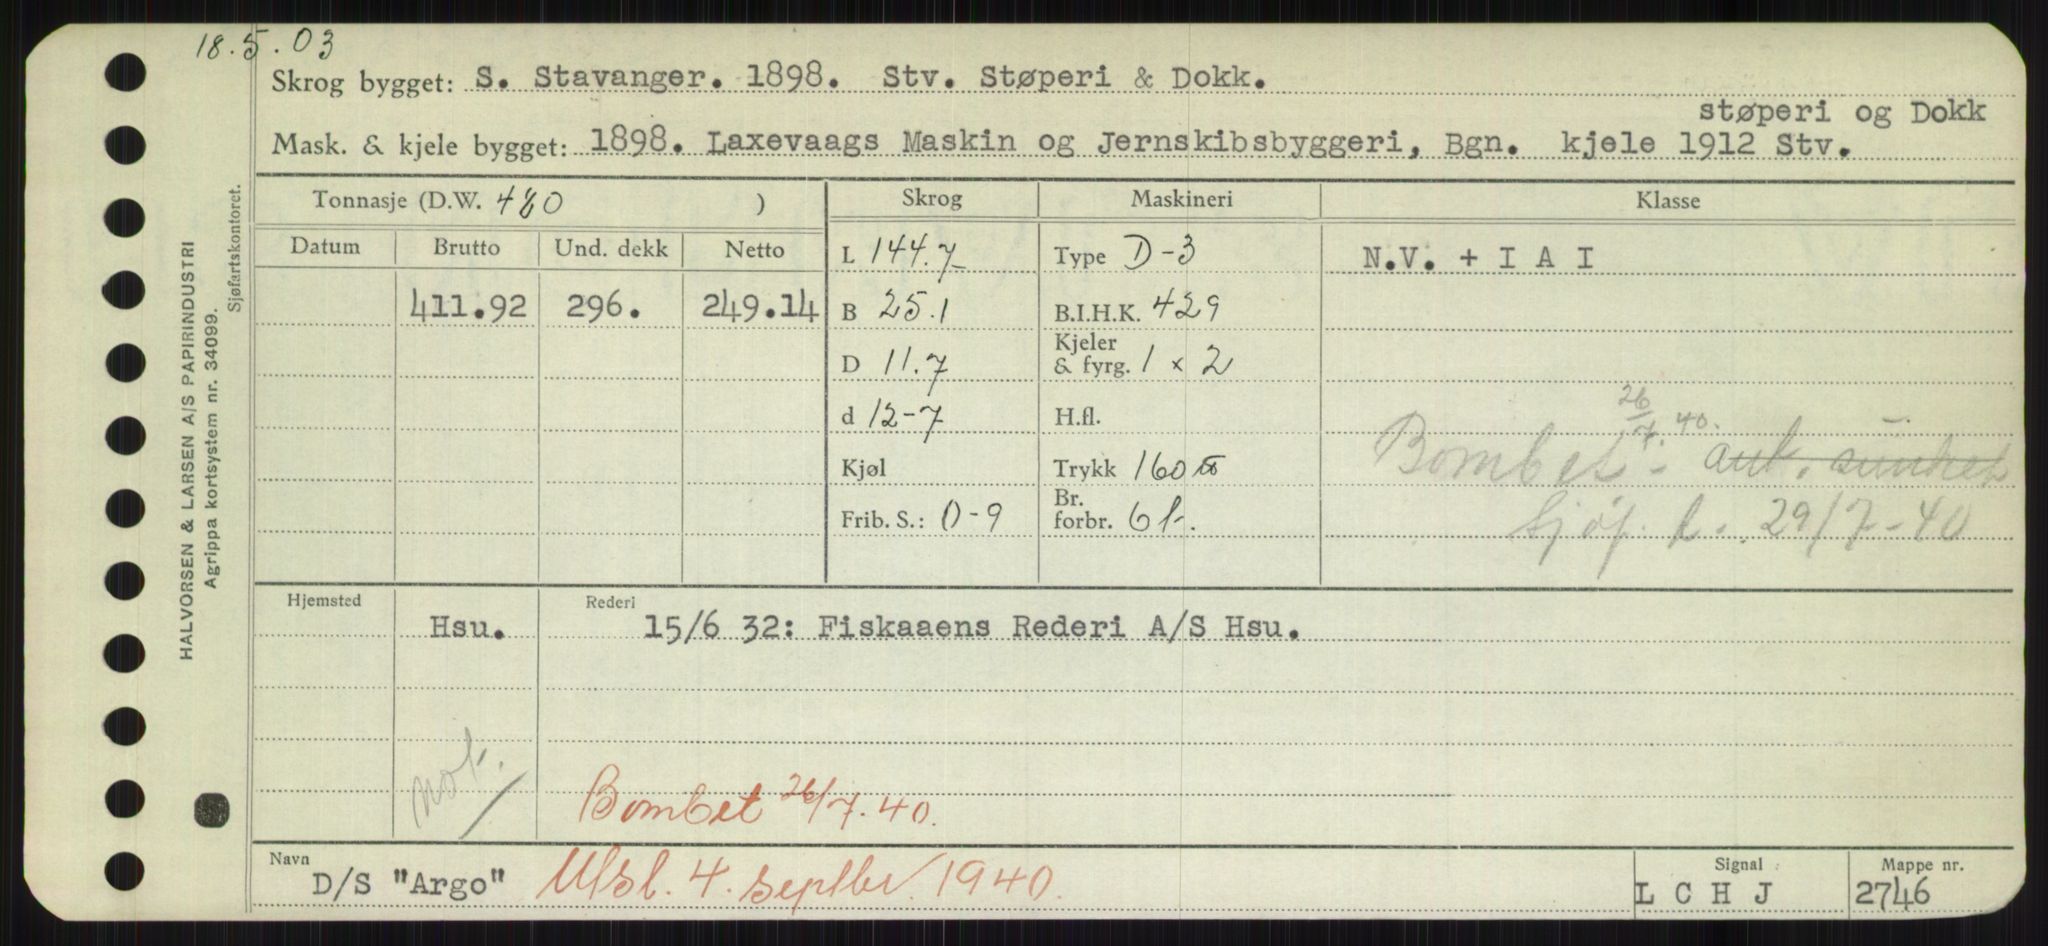 18.5.03
Skrog bygget: S. Stavanger. 1898. Stv. Støperi & Dokk.
støperi og Dokk
Mask. & kjele bygget: 1898. Laxevaags Maskin og Jernskibsbyggeri, Bgn. kjele 1912 Stv.
HALVORSEN & LARSEN A/S PAPIRINDUSTRI
Agrippa kortsystem nr. 34099.
Sjøfartskontoret.
Tonnasje (D.W. 480 ) Skrog Maskineri Klasse
Datum Brutto Und. dekk Netto
L 144.7 Type D-3 N.V. + I A I
411.92 296. 249.14 B 25.1 B.I.H.K. 429
D 11.7 Kjeler & fyrg. 1 x 2
d 12-7 H.fl.
26/7.40.
Kjøl Trykk 160 Bombet - ant. sunket
Frib. S.: 0-9 Br. forbr. 6 t. Sjøf. d. 29/7-40
Hjemsted Rederi
Hsu. 15/6 32: Fiskaaens Rederi A/S Hsu.
not.
Bombet 26/7.40.
Navn Signal Mappe nr.
D/S "Argo" Utsl. 4. septbr. 1940. L C H J 2746